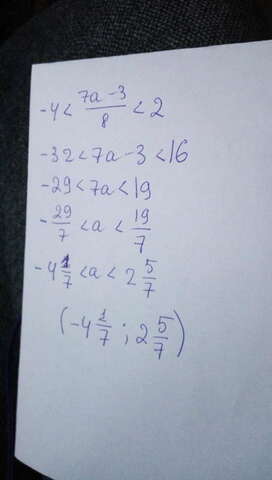 -4 < (7a - 3)/8 < 2
-32 < 7a - 3 < 16
-29 < 7a < 19
-29/7 < a < 19/7
-4 1/7 < a < 2 5/7
(-4 1/7 ; 2 5/7)